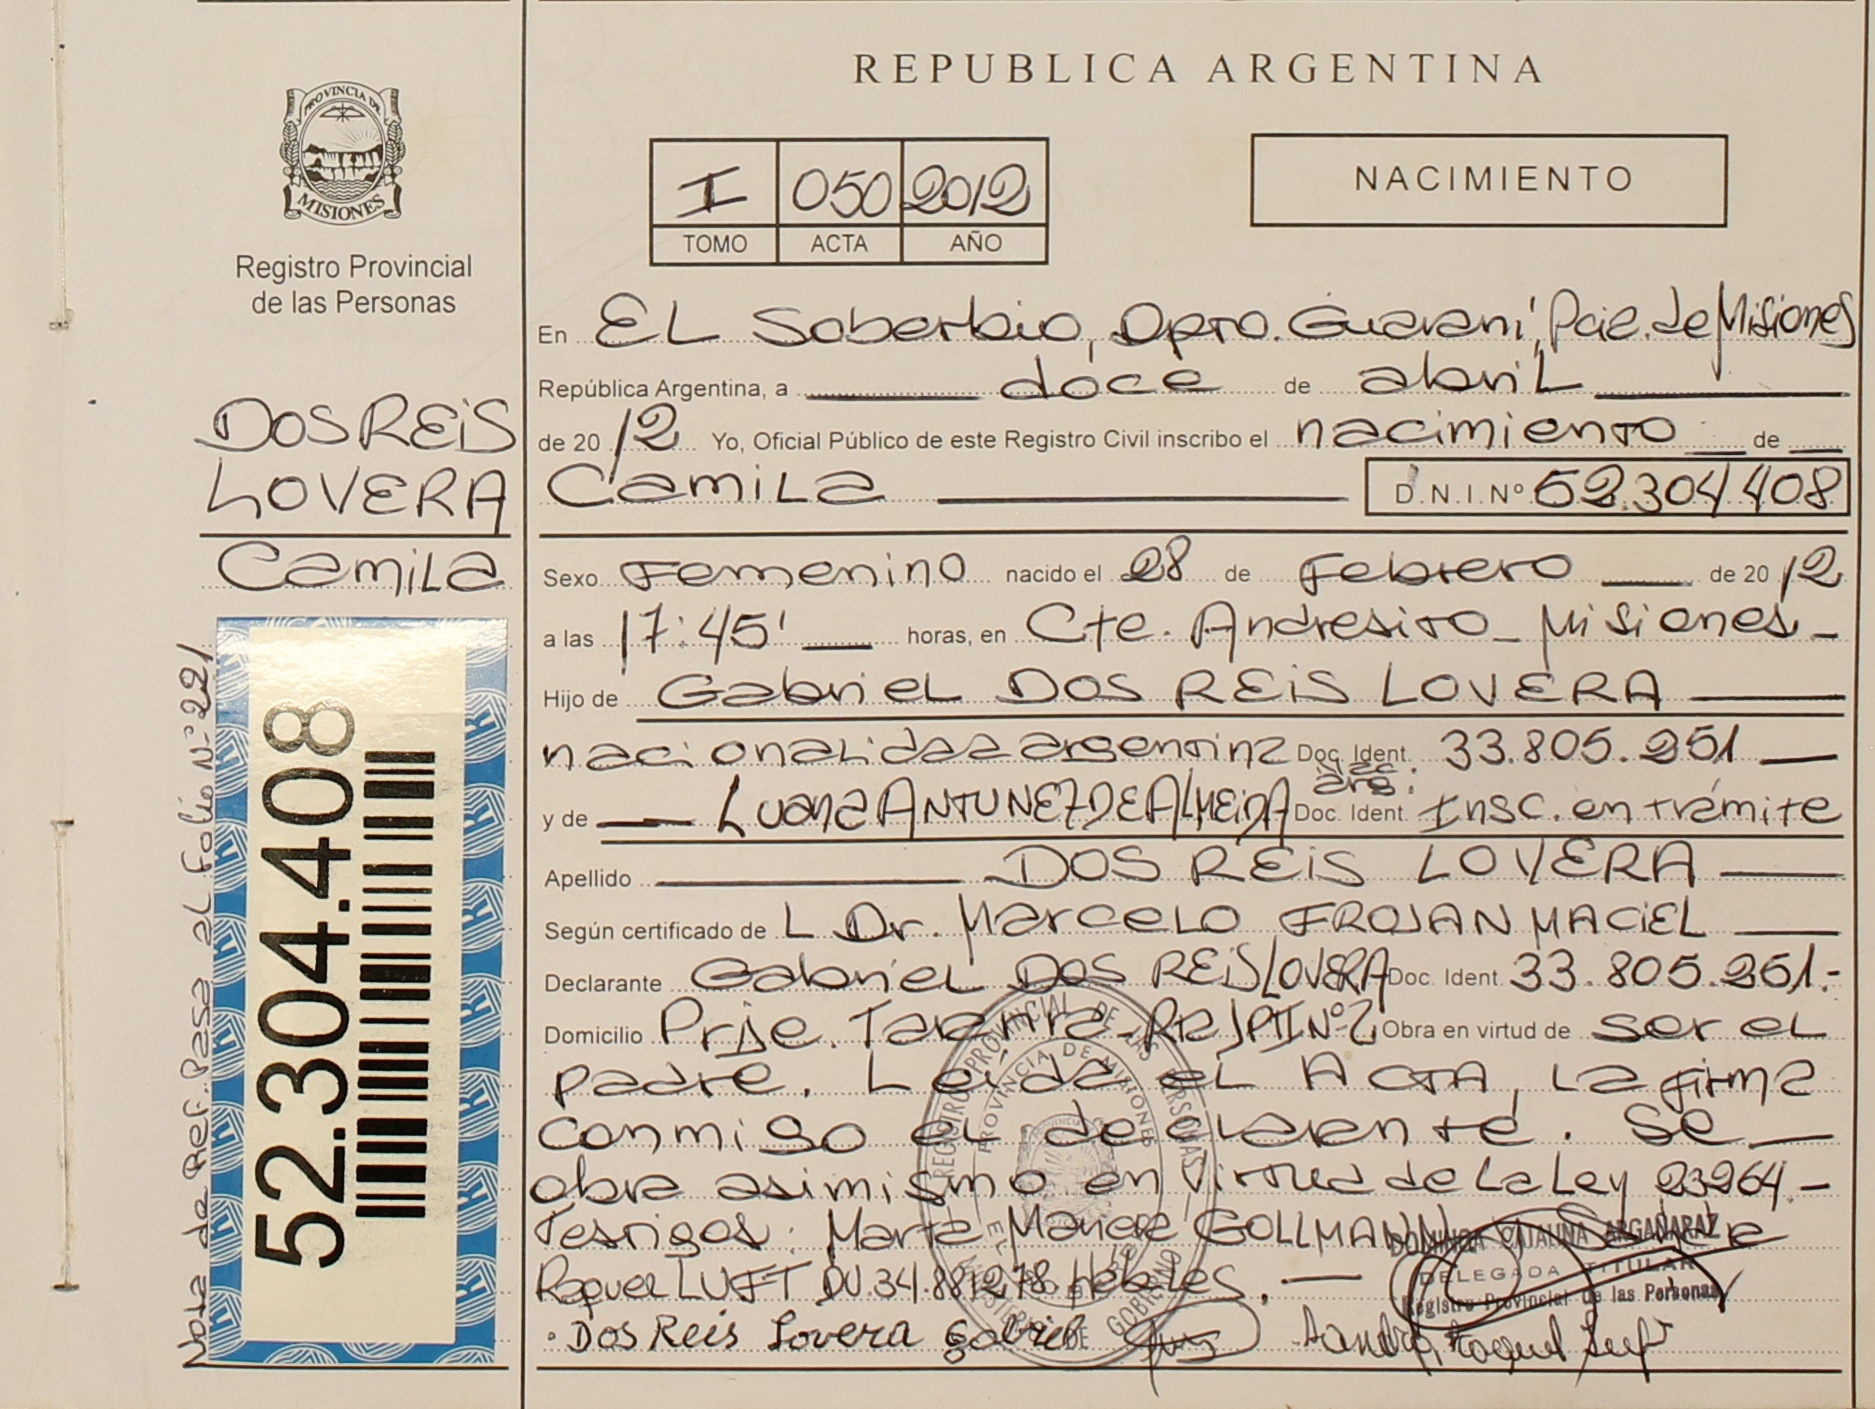 REPUBLICA ARGENTINA
PROVINCIA DE
MISIONES
Registro Provincial
de las Personas
I 050 2012
TOMO ACTA AÑO
NACIMIENTO
DOS REIS
LOVERA
Camila
Nota de Ref. Pasa al Folio Nº 221
52.304.408
En EL Soberbio, Dpto. Guaraní, Pcie. de Misiones
República Argentina, a doce de abril
de 2012 Yo, Oficial Público de este Registro Civil inscribo el nacimiento de
Camila D.N.I. Nº 52.304.408
Sexo Femenino nacido el 28 de Febrero de 2012
a las 17:45' horas, en Cte. Andresito - Misiones -
Hijo de Gabriel DOS REIS LOVERA
nacionalidad argentina Doc. Ident. 33.805.251
Nac. arg.
y de Luana ANTUNEZ DE ALMEIDA Doc. Ident. Insc. en trámite
Apellido DOS REIS LOVERA
Según certificado de L Dr. Marcelo FROJAN MACIEL
Declarante Gabriel DOS REIS LOVERA Doc. Ident. 33.805.251.-
Domicilio Prje. Obra en virtud de ser el
padre. Leída el ACTA, La firma
conmigo el declarante. Se
obra asimismo en virtud de La Ley 23264.-
Testigos: Marta GOLLMANN
Raquel LUFT DU 34.881.278 hábiles.
DOMINGA CATALINA ARGAÑARAZ
DELEGADA TITULAR
Registro Provincial de las Personas
Dos Reis Lovera Gabriel
REGISTRO PROVINCIAL DE LAS PERSONAS
PROVINCIA DE MISIONES
MINISTERIO DE GOBIERNO